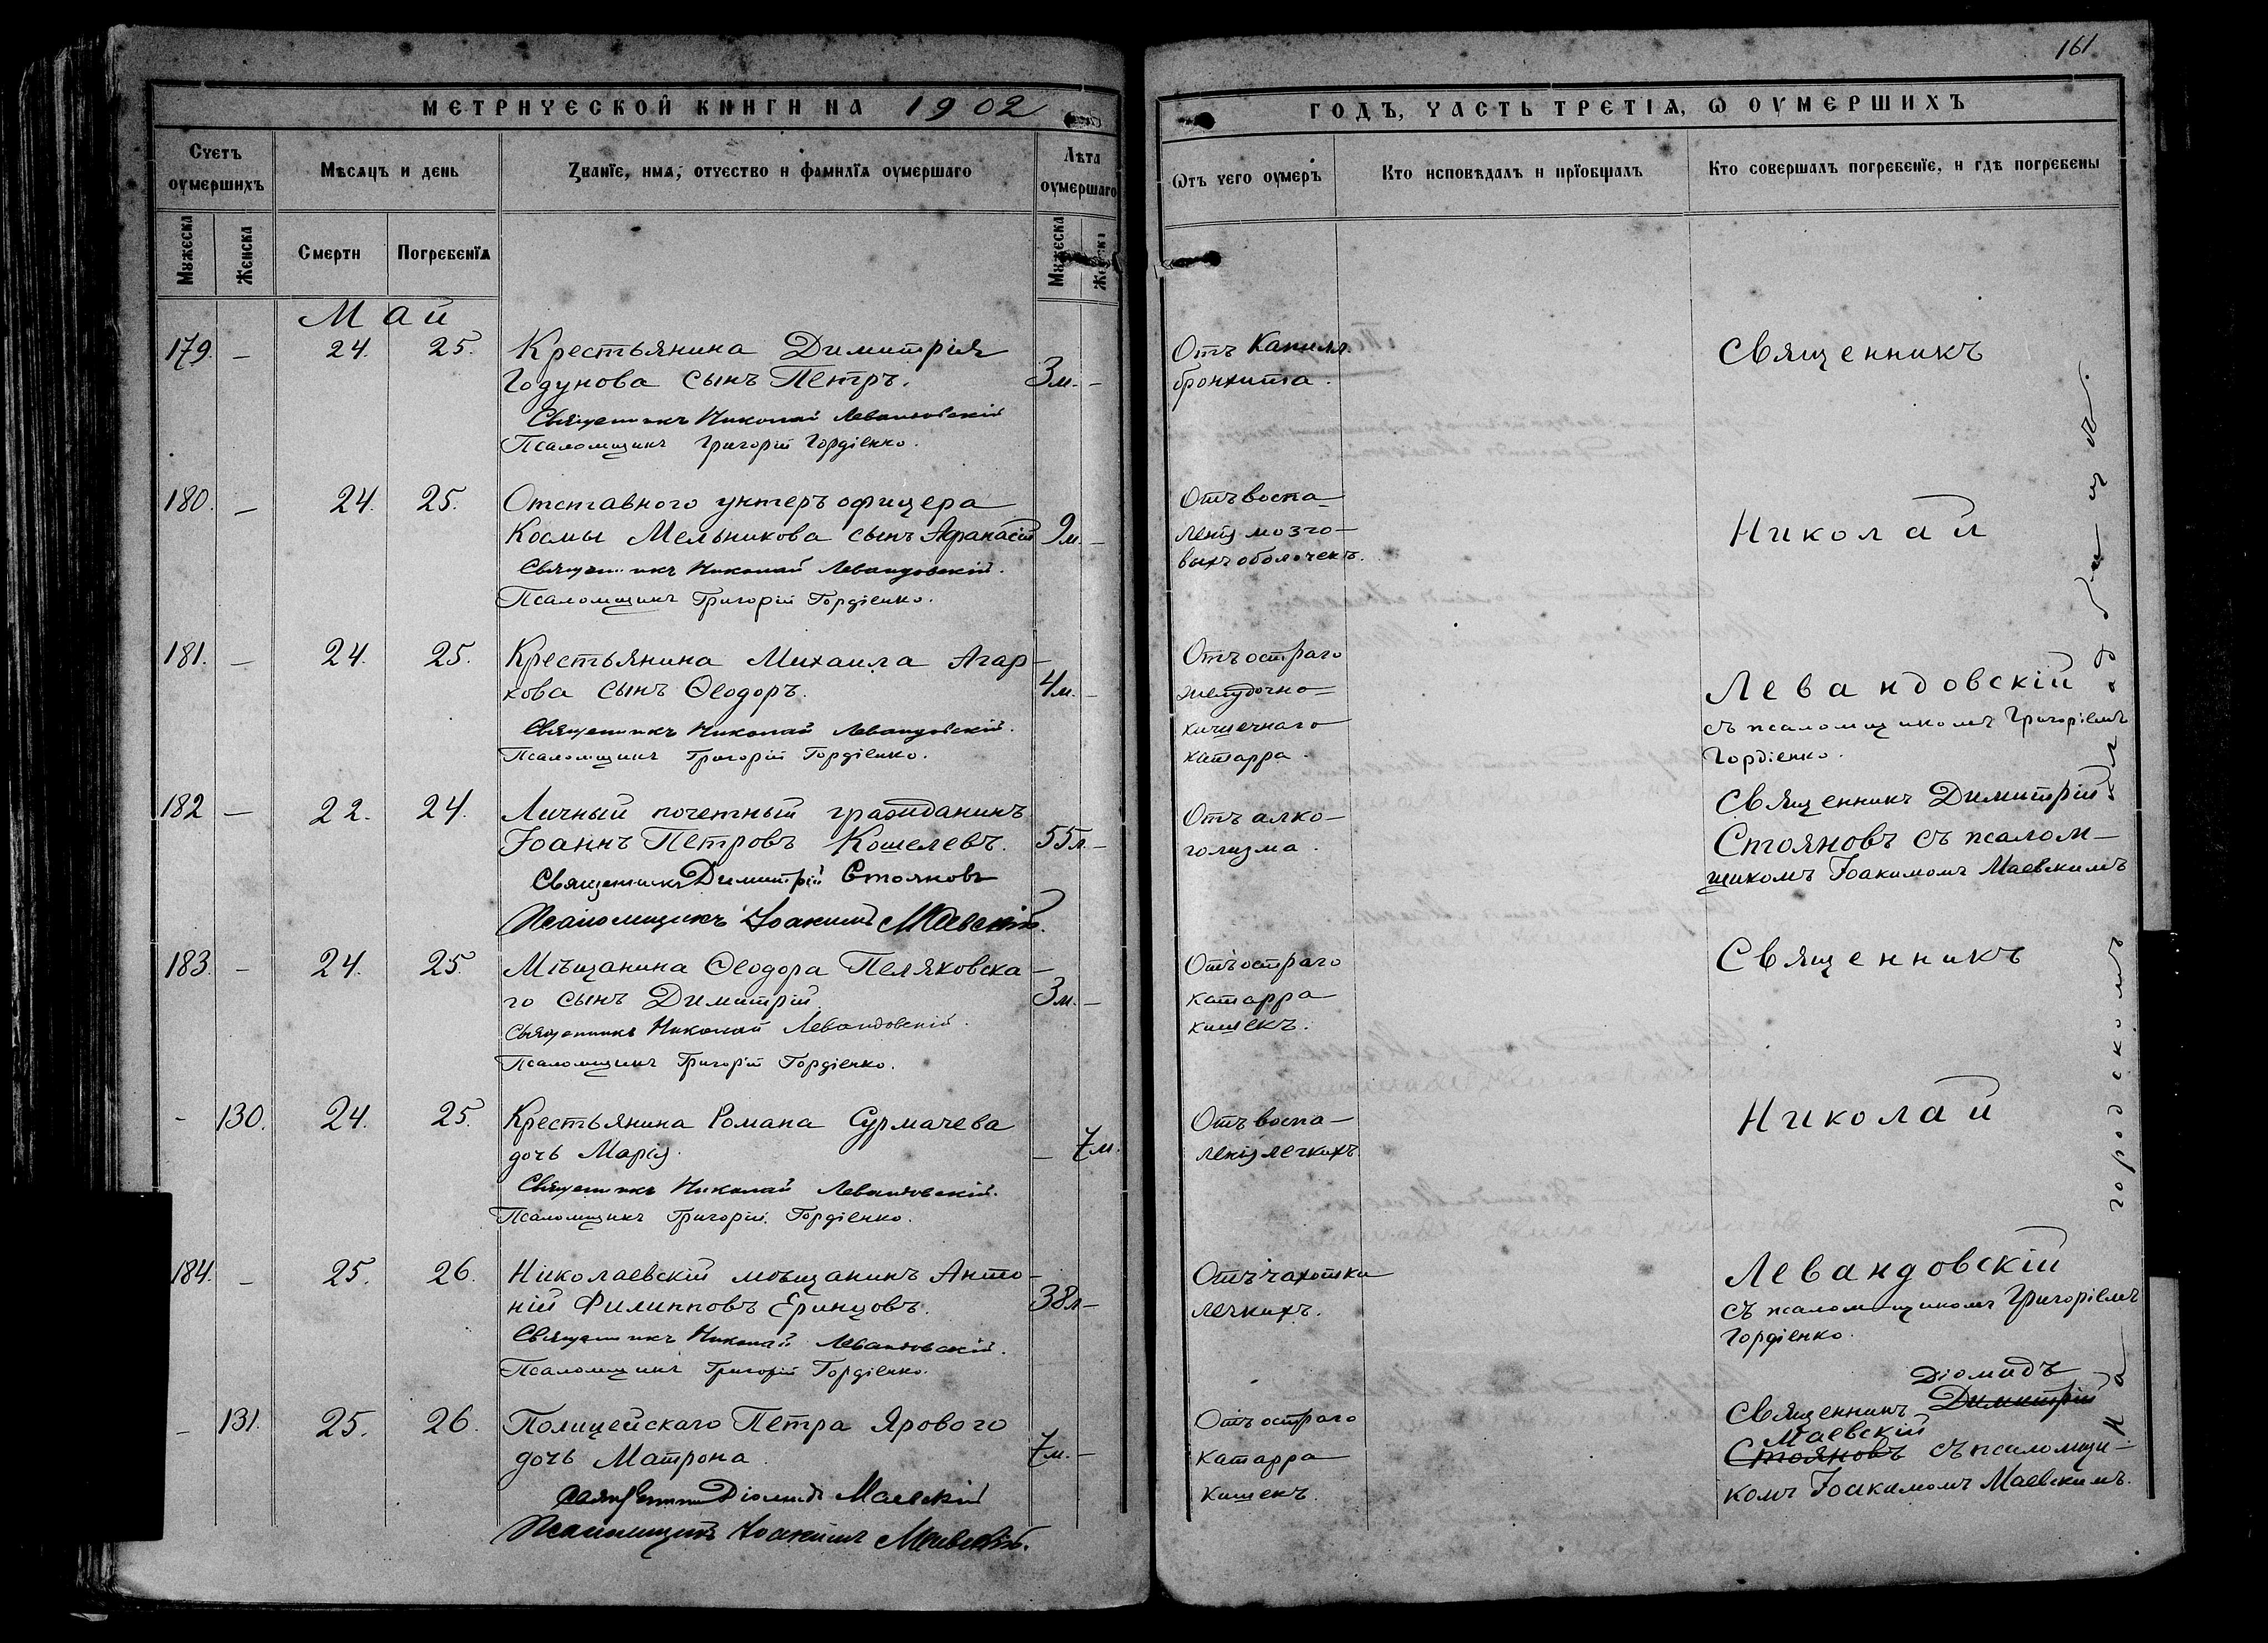 161
МЕТРИЧЕСКОЙ КНИГИ НА 1902
ГОДЪ, ЧАСТЬ ТРЕТІѦ, Ѡ ОУМЕРШИХЪ
Счетъ оумершихъ
Мѣсяцъ и день
Званїе, имѧ, отчество и фамилїѧ оумершаго
Лѣта оумершаго
Ѿтъ чего оумеръ
Кто исповѣдалъ и прїобщалъ
Кто совершалъ погребенїе, и гдѣ погребены
Мужеска
Женска
Смерти
Погребенїѧ
Мужеска
Женска
Май
179. — 24. 25.
Крестьянина Димитрія
Годунова сынъ Петръ.
3 м. —
Священникъ Николай Левандовскій
Псаломщикъ Григорій Гордіенко.
Отъ Капилл.
бронхита.
180. — 24. 25.
Отставного унтеръ офицера
Космы Мельникова сынъ Афанасій
9 м. —
Священникъ Николай Левандовскій.
Псаломщикъ Григорій Гордіенко.
Отъ воспа—
ленія мозго—
выхъ оболочекъ.
181. — 24. 25.
Крестьянина Михаила Агар—
кова сынъ Ѳеодоръ.
4 м. —
Священникъ Николай Левандовскій.
Псаломщикъ Григорій Гордіенко.
Отъ остраго
желудочно=
кишечнаго
катарра.
Священникъ
Николай
Левандовскій
съ псаломщикомъ Григоріемъ
Гордіенко.
182 — 22. 24.
Личный почетный гражданинъ
Іоаннъ Петровъ Кошелевъ.
55 л. —
Священникъ Димитрій Стояновъ
Псаломщикъ Іоакимъ Маевскій.
Отъ алко—
голизма.
Священникъ Димитрій
Стояновъ съ псалом—
щикомъ Іоакимомъ Маевскимъ
183. — 24. 25.
Мѣщанина Ѳеодора Пеляковска—
го сынъ Димитрій
3 м. —
Священникъ Николай Левандовскій.
Псаломщикъ Григорій Гордіенко.
Отъ остраго
катарра
кишекъ.
- 130. 24. 25.
Крестьянина Романа Сурмачева
дочь Марія.
— 7 м.
Священникъ Николай Левандовскій.
Псаломщикъ Григорій Гордіенко.
Отъ воспа—
ленія легкихъ
184. — 25. 26.
Николаевскій мѣщанинъ Анто—
ній Филипповъ Еринцовъ.
38 л —
Священникъ Николай Левандовскій.
Псаломщикъ Григорій Гордіенко.
Отъ чахотки
легкихъ.
Священникъ
Николай
Левандовскій
съ псаломщикомъ Григоріемъ
Гордіенко.
— 131. 25. 26.
Полицейскаго Петра Ярового
дочь Матрона.
7 м. —
Священникъ Діомидъ Маевскій
Псаломщикъ Іоакимъ Маевскій.
Отъ остраго
катарра
кишекъ.
Діомидъ
Священникъ Димитрій
Маевскій
Стояновъ съ псаломщи—
комъ Іоакимомъ Маевскимъ.
На городскомъ кладбищѣ.